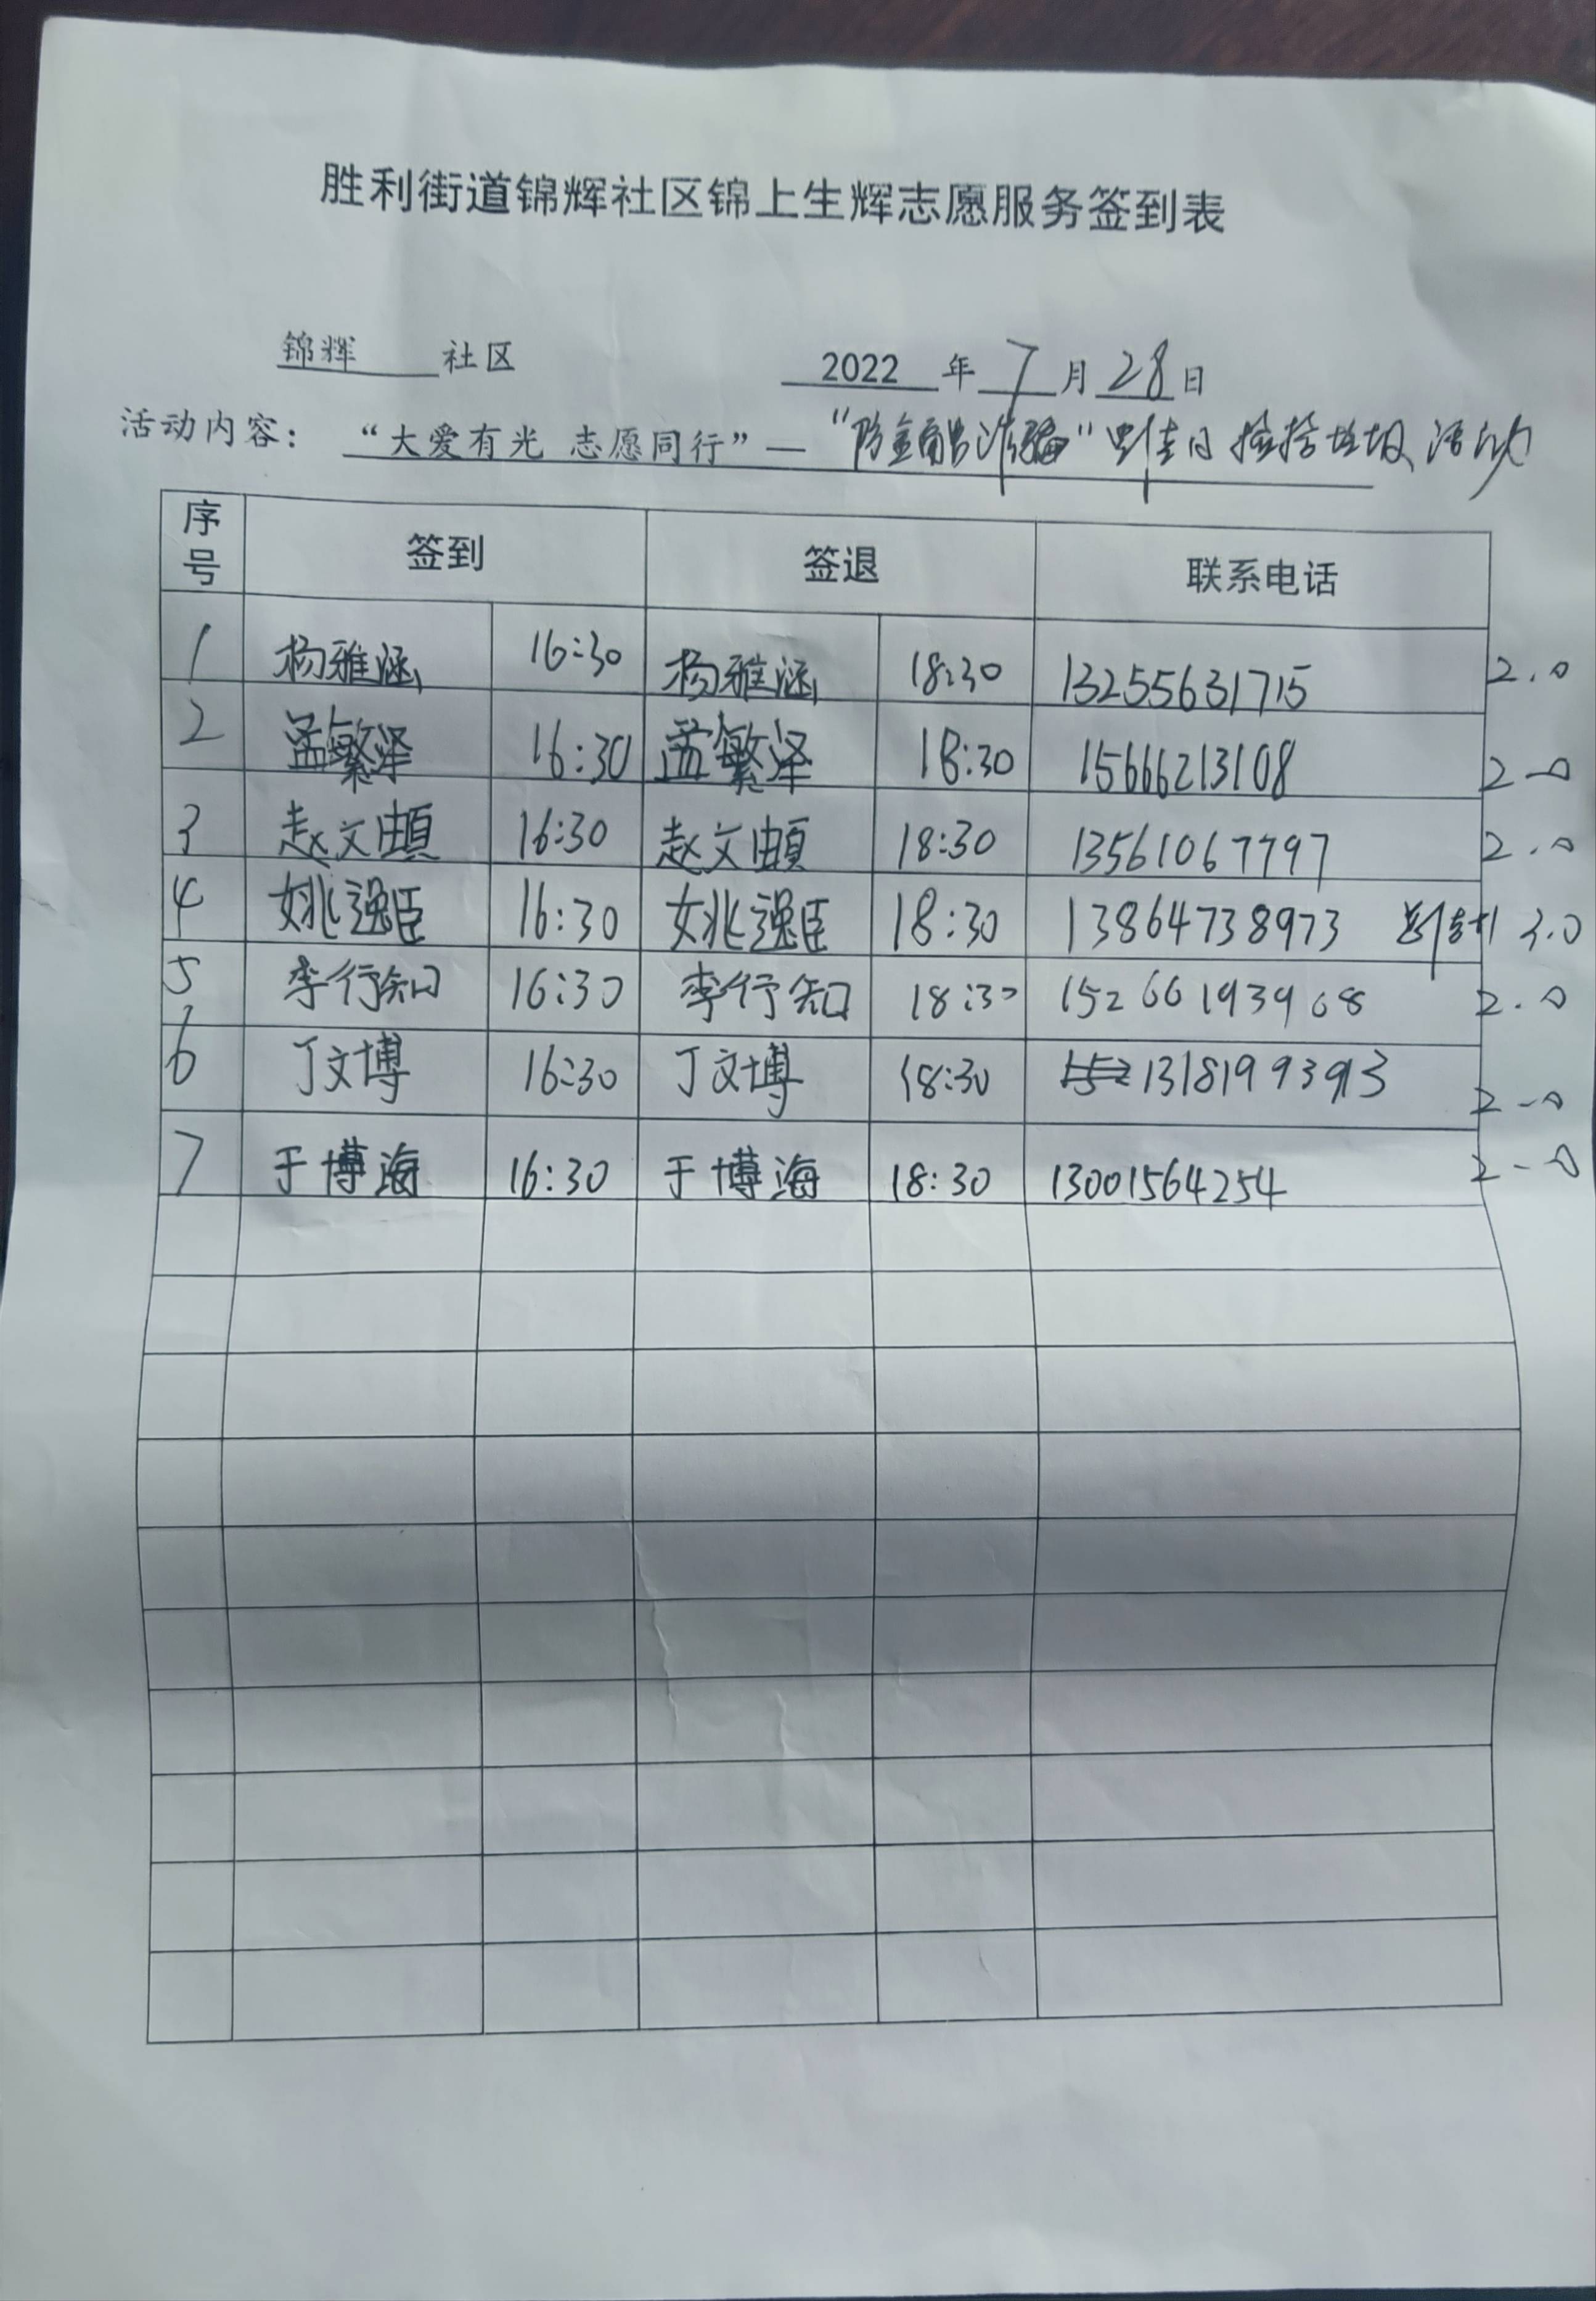 胜利街道锦辉社区锦上生辉志愿服务签到表
锦辉 社区 2022 年 7 月 28 日
活动内容： “大爱有光 志愿同行”— “防金融诈骗” 捡拾垃圾活动
序号 签到 签退 联系电话
1 杨雅涵 16:30 杨雅涵 18:30 13255631715 2.0
2 孟繁泽 16:30 孟繁泽 18:30 15666213108 2.0
3 赵文 16:30 赵文 18:30 13561067797 2.0
4 姚逸臣 16:30 姚逸臣 18:30 13864738973 2.0
5 李行知 16:30 李行知 18:30 15266193968 2.0
6 丁文博 16:30 丁文博 18:30 13181993913 2.0
7 于博海 16:30 于博海 18:30 13001564254 2.0